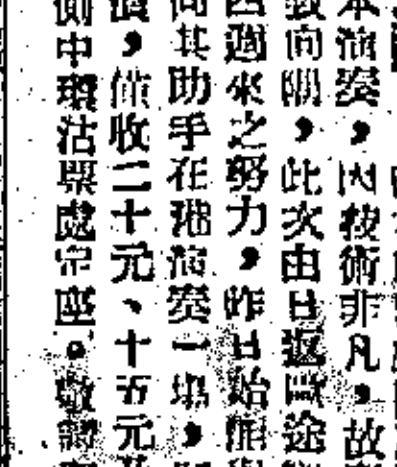 本演奏，因技術非凡，故
致向隅，此次由日返歐途
過來之努力，昨日始
向其助手在港演奏一場，
，僅收二十元、十五元
側中環沽票處定座。敬